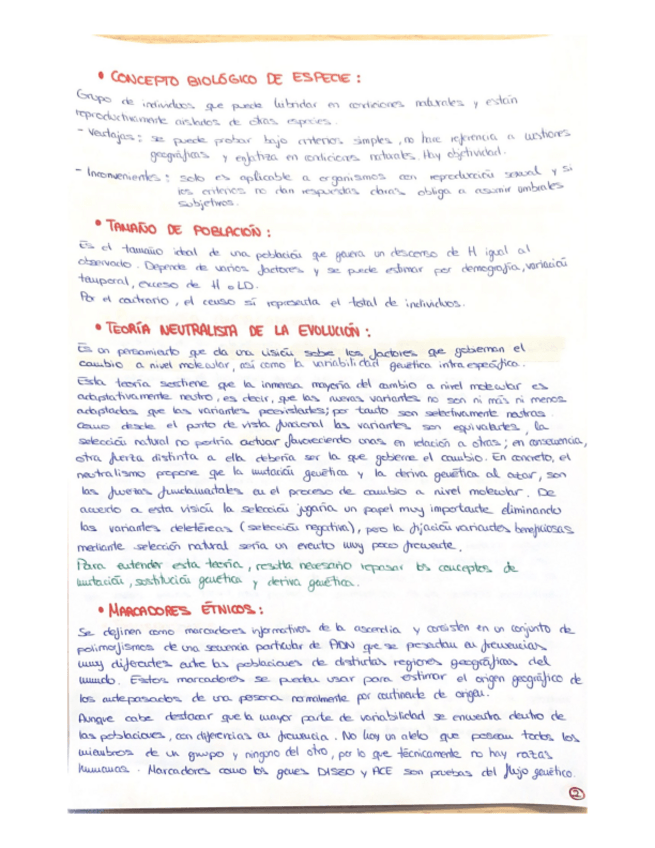 • CONCEPTO BIOLÓGICO DE ESPECIE:
Grupo de individuos que puede hibridar en condiciones naturales y están
reproductivamente aislados de otras especies.
- Ventajas: se puede probar bajo criterios simples, no hace referencia a cuestiones
geográficas y enfatiza en condiciones naturales. Hay objetividad.
- Inconvenientes: solo es aplicable a organismos con reproducción sexual y si
los criterios no dan respuestas claras obliga a asumir umbrales
subjetivos.
• TAMAÑO DE POBLACIÓN:
Es el tamaño ideal de una población que genera un descenso de H igual al
observado. Depende de varios factores y se puede estimar por demografía, variación
temporal, exceso de H o LD.
Por el contrario, el censo sí representa el total de individuos.
• TEORÍA NEUTRALISTA DE LA EVOLUCIÓN:
Es un pensamiento que da una visión sobre los factores que gobiernan el
cambio a nivel molecular, así como la variabilidad genética intraespecífica.
Esta teoría sostiene que la inmensa mayoría del cambio a nivel molecular es
adaptativamente neutro, es decir, que las nuevas variantes no son ni más ni menos
adaptadas que las variantes preexistentes; por tanto son selectivamente neutras.
Como desde el punto de vista funcional las variantes son equivalentes, la
selección natural no podría actuar favoreciendo unas en relación a otras; en consecuencia,
otra fuerza distinta a ella debería ser la que gobierne el cambio. En concreto, el
neutralismo propone que la mutación genética y la deriva genética al azar, son
las fuerzas fundamentales en el proceso de cambio a nivel molecular. De
acuerdo a esta visión la selección jugaría un papel muy importante eliminando
las variantes deletéreas (selección negativa), pero la fijación variantes beneficiosas
mediante selección natural sería un evento muy poco frecuente.
Para entender esta teoría, resulta necesario repasar los conceptos de
mutación, sustitución genética y deriva genética.
• MARCADORES ÉTNICOS:
Se definen como marcadores informativos de la ascendia y consisten en un conjunto de
polimorfismos de una secuencia particular de ADN que se presentan en frecuencias
muy diferentes entre las poblaciones de distintas regiones geográficas del
mundo. Estos marcadores se pueden usar para estimar el origen geográfico de
los antepasados de una persona normalmente por continente de origen.
Aunque cabe destacar que la mayor parte de variabilidad se encuentra dentro de
las poblaciones, con diferencias en frecuencia. No hay un alelo que posean todos los
miembros de un grupo y ninguno del otro, por lo que técnicamente no hay razas
humanas. Marcadores como los genes DISEO y ACE son pruebas del flujo genético.
2